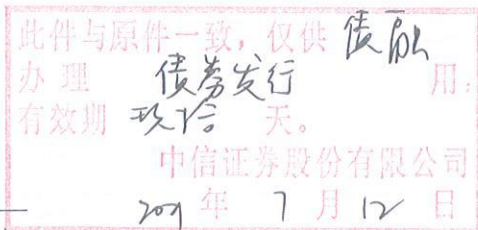 此件与原件一致，仅供 债融
办理 债券发行 用，
有效期 玖拾 天。
中信证券股份有限公司
年 7 月 12 日